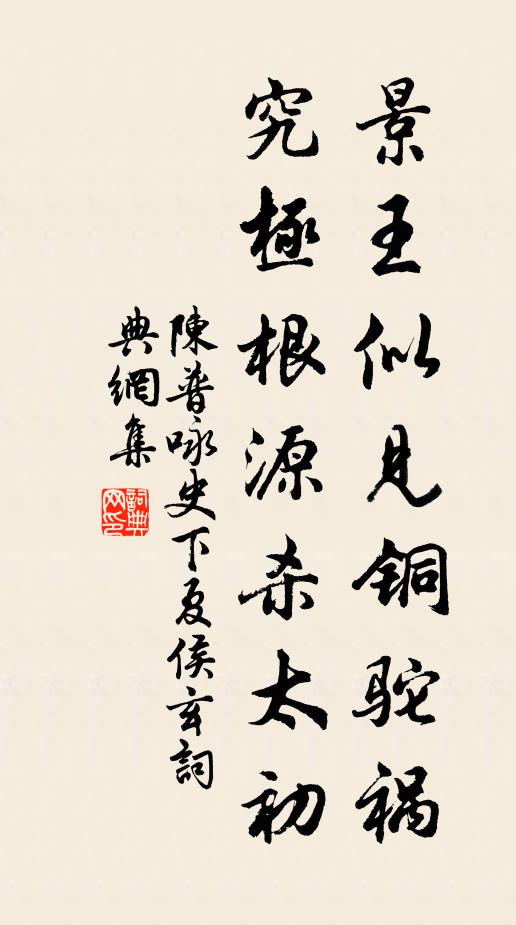 景王似见铜驼祸
究極根源杀太初
陳普咏史下夏侯玄詞
典網集
詞典网印